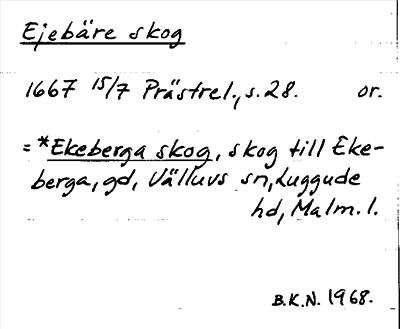 Ejebäre skog
1667 15/7 Prästrel., s. 28. or.
= *Ekeberga skog, skog till Eke-
berga, gd, Välluvs sn, Luggude
hd, Malm. l.
B.K.N. 1968.